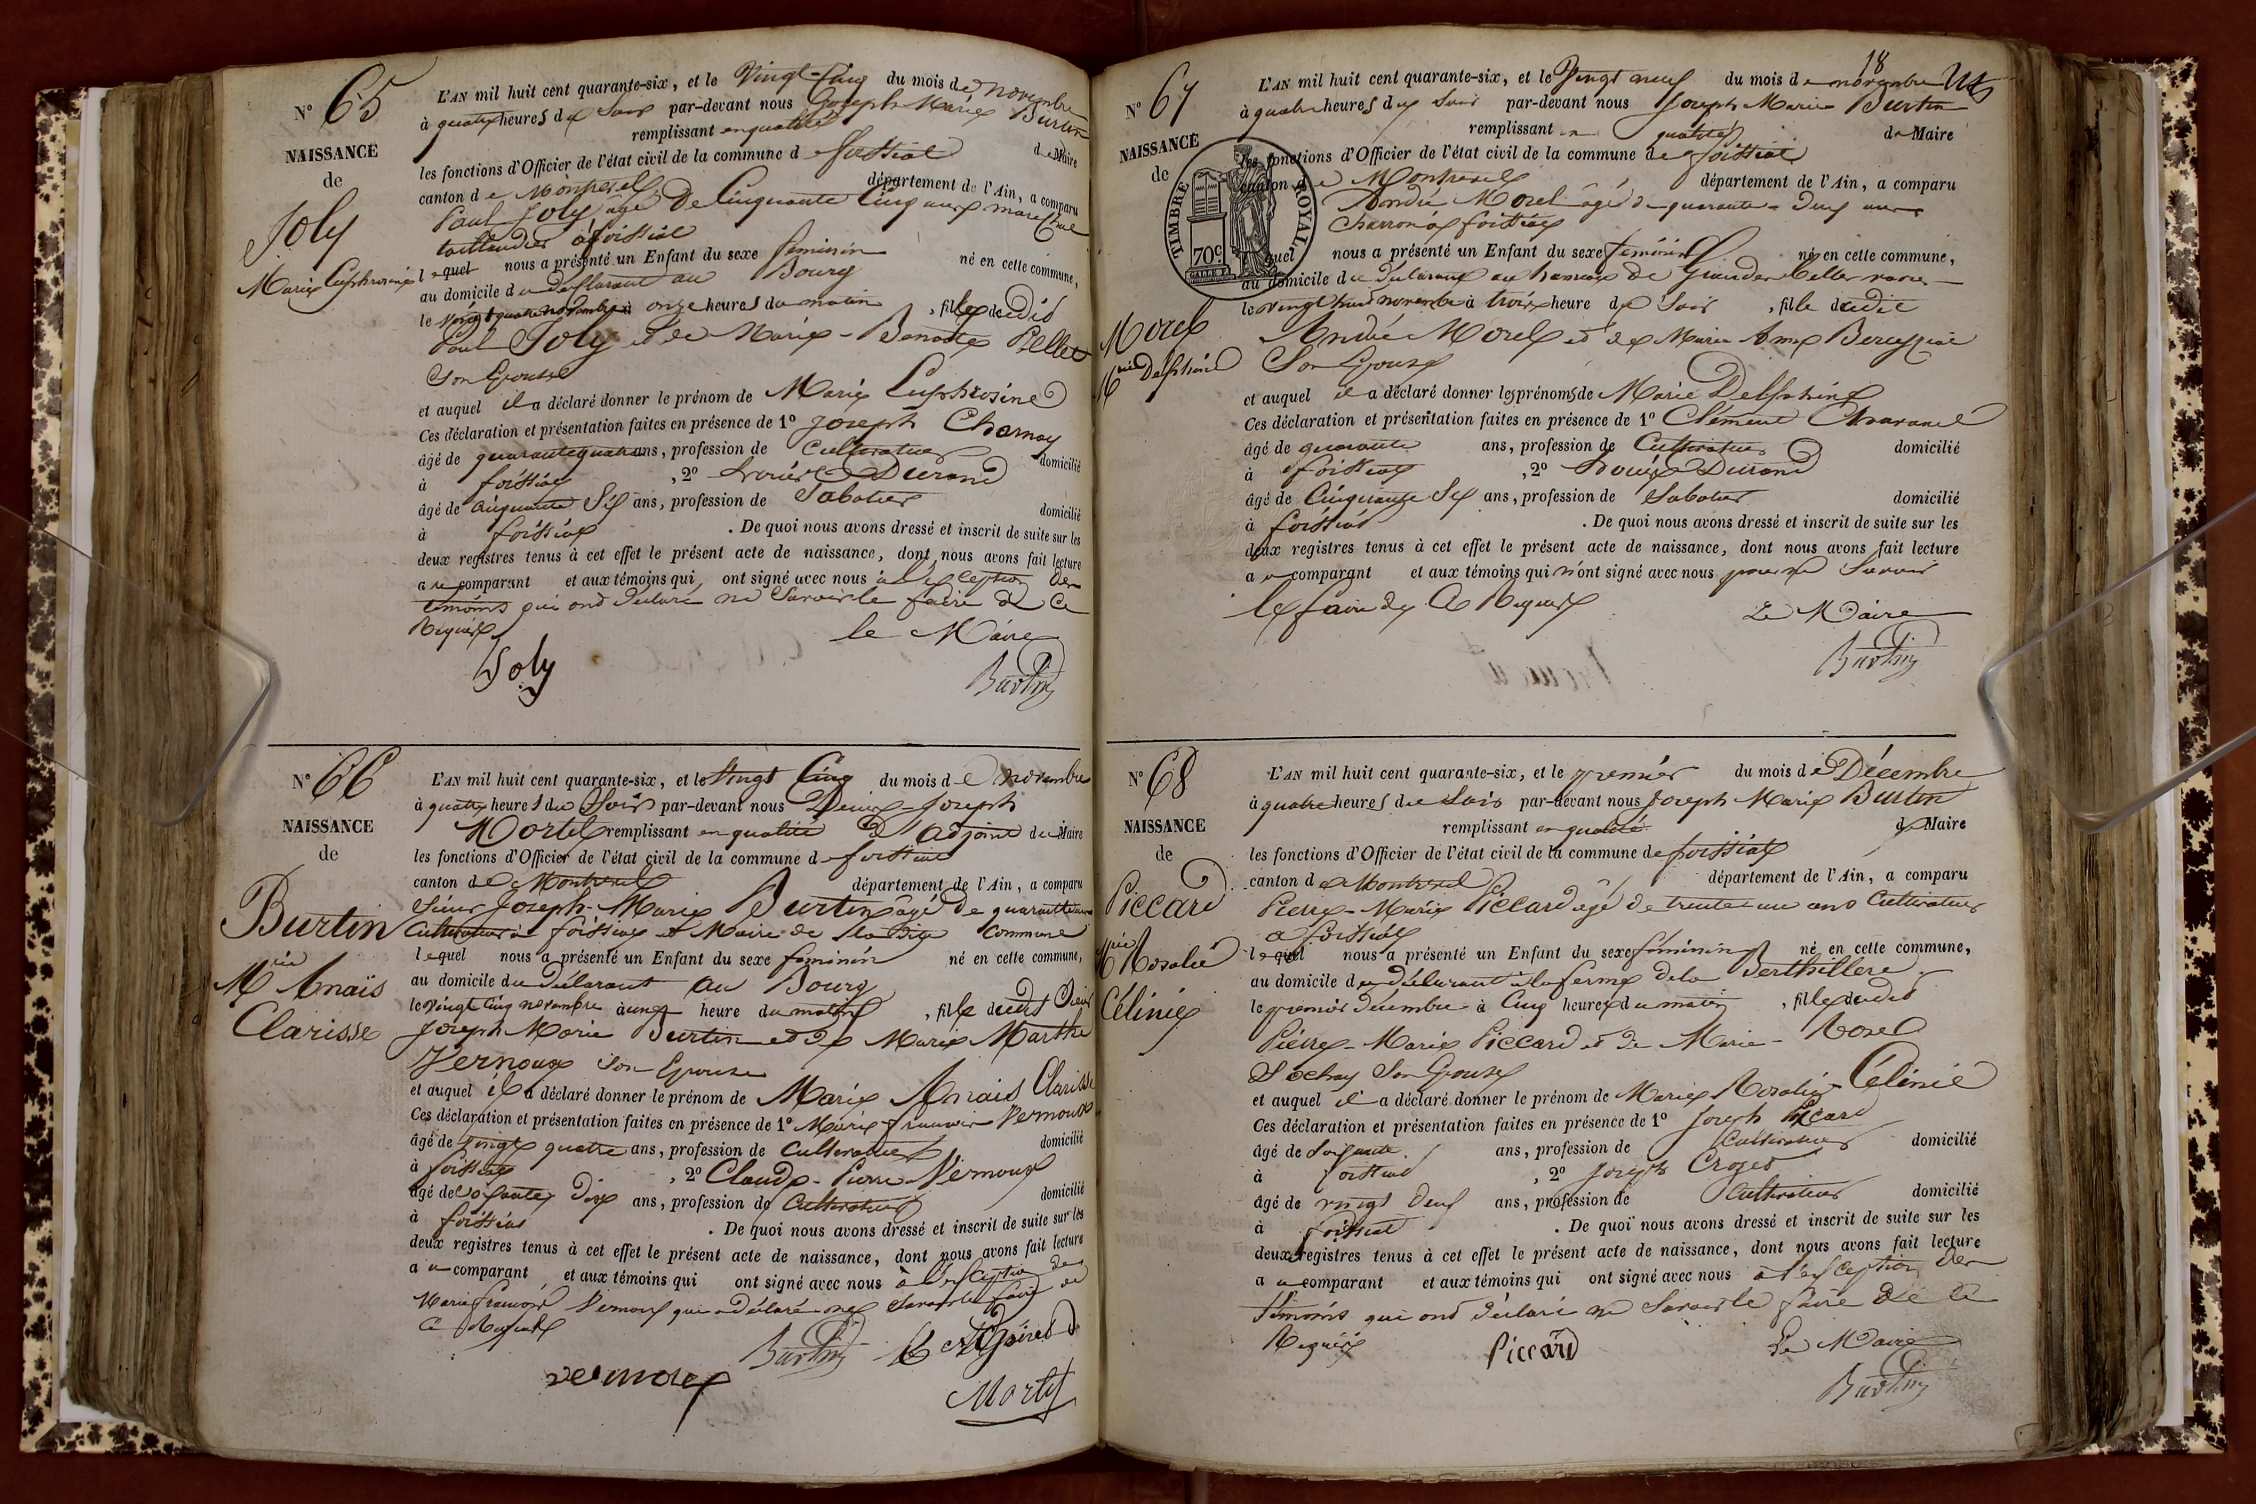 N° 65
NAISSANCE
de
Joly
Marie Euphrosine
L'AN mil huit cent quarante-six, et le Vingt-Cinq du mois de novembre
à quatre heures du Soir par-devant nous Joseph Marie Burtin
remplissant en qualité de Maire
les fonctions d'Officier de l'état civil de la commune de foissiat
canton de Montrevel département de l'Ain, a comparu
Paul Joly âgé De Cinquante Cinq ans marechal
taillandier à foissiat
lequel nous a présenté un Enfant du sexe feminin né en cette commune,
au domicile du déclarant au Bourg
le Vingt quatre novembre à onze heures du matin, fille dudit
Paul Joly et de Marie-Benoite Pellet
Son Epouse
et auquel il a déclaré donner le prénom de Marie Euphrosine
Ces déclaration et présentation faites en présence de 1° Joseph Charnay
âgé de quarante quatre ans, profession de Cultivateur domicilié
à foissiat, 2° Louis Durand
âgé de Cinquante Six ans, profession de Sabotier domicilié
à foissiat. De quoi nous avons dressé et inscrit de suite sur les
deux registres tenus à cet effet le présent acte de naissance, dont nous avons fait lecture
au comparant et aux témoins qui ont signé avec nous à l'exception des
témoins qui ont déclaré ne Savoir le faire de Ce
Requis
le Maire
Joly
Burtin
N° 66
NAISSANCE
de
Burtin
Mrie Anaïs
Clarisse
L'AN mil huit cent quarante-six, et le Vingt Cinq du mois de novembre
à quatre heures du Soir par-devant nous Denis-Joseph
Mortel remplissant en qualité d'adjoint du Maire
les fonctions d'Officier de l'état civil de la commune de foissiat
canton de Montrevel département de l'Ain, a comparu
Sieur Joseph-Marie Burtin âgé de quarante ans
Cultivateur à foissiat et Maire de la dite Commune
lequel nous a présenté un Enfant du sexe feminin né en cette commune,
au domicile du déclarant au Bourg
le vingt cinq novembre à une heure du matin, fille dudit Sieur
Joseph Marie Burtin et de Marie Marthe
Vernoux Son Epouse
et auquel il a déclaré donner le prénom de Marie Anaïs Clarisse
Ces déclaration et présentation faites en présence de 1° Marie françois Vernoux
âgé de vingt quatre ans, profession de Cultivateur domicilié
à foissiat, 2° Claude-Pierre Vernoux
âgé de Soixante Dix ans, profession de Cultivateur domicilié
à foissiat. De quoi nous avons dressé et inscrit de suite sur les
deux registres tenus à cet effet le présent acte de naissance, dont nous avons fait lecture
au comparant et aux témoins qui ont signé avec nous à l'exception de
Marie françois Vernoux qui a déclaré ne Savoir le faire de
Ce Requis
Burtin L'Adjoint
vernoux
Mortel
18
N° 67
NAISSANCE
de
TIMBRE ROYAL
70c
Morel
Mrie Delphine
L'AN mil huit cent quarante-six, et le Vingt neuf du mois de novembre
à quatre heures du Soir par-devant nous Joseph Marie Burtin
remplissant en qualité de Maire
les fonctions d'Officier de l'état civil de la commune de foissiat
canton de Montrevel département de l'Ain, a comparu
André Morel âgé de quarante-deux ans
Charron à foissiat
lequel nous a présenté un Enfant du sexe féminin né en cette commune,
au domicile du déclarant au hameau de
le vingt huit novembre à trois heure du Soir, fille dudit
André Morel et de Marie Anne
Son Epouse
et auquel il a déclaré donner les prénoms de Marie Delphine
Ces déclaration et présentation faites en présence de 1° Clément
âgé de quarante ans, profession de Cultivateur domicilié
à foissiat, 2° Louis Durand
âgé de Cinquante Six ans, profession de Sabotier domicilié
à foissiat. De quoi nous avons dressé et inscrit de suite sur les
deux registres tenus à cet effet le présent acte de naissance, dont nous avons fait lecture
au comparant et aux témoins qui n'ont signé avec nous pour ne Savoir
le faire de Ce Requis
Le Maire
Burtin
N° 68
NAISSANCE
de
Piccard
Mrie Rosalie
Célinie
L'AN mil huit cent quarante-six, et le premier du mois de Décembre
à quatre heures du Soir par-devant nous Joseph Marie Burtin
remplissant en qualité de Maire
les fonctions d'Officier de l'état civil de la commune de foissiat
canton de Montrevel département de l'Ain, a comparu
Pierre-Marie Piccard âgé de trente un ans Cultivateur
à foissiat
lequel nous a présenté un Enfant du sexe féminin né en cette commune,
au domicile du déclarant à la ferme de la Berthillere
le premier Décembre à Cinq heures du matin, fille dudit
Pierre-Marie Piccard et de Marie-
Son Epouse
et auquel il a déclaré donner le prénom de Marie Rosalie Célinie
Ces déclaration et présentation faites en présence de 1° Joseph Picard
âgé de Soixante ans, profession de Cultivateur domicilié
à foissiat, 2° Joseph
âgé de vingt Deux ans, profession de Cultivateur domicilié
à foissiat. De quoi nous avons dressé et inscrit de suite sur les
deux registres tenus à cet effet le présent acte de naissance, dont nous avons fait lecture
au comparant et aux témoins qui ont signé avec nous à l'exception Des
témoins qui ont déclaré ne Savoir le faire de Ce
Requis
Piccard
Le Maire
Burtin